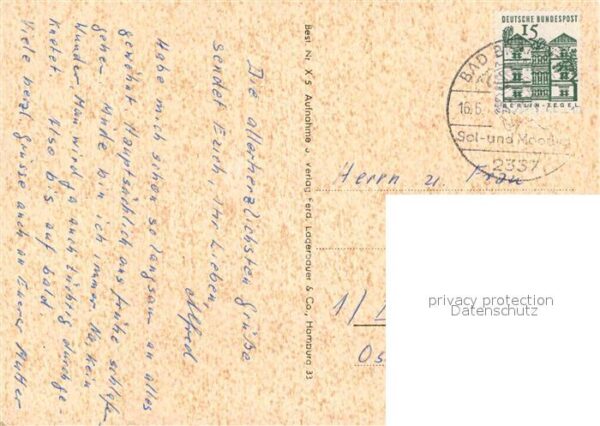 Die allerherzlichsten Grüße
sendet Euch, Ihr Lieben,
Alfred
Habe mich schon so langsam an alles
gewöhnt. Hauptsächlich ans frühe schlafen
gehen. Müde bin ich immer. Na, kein
Wunder. Man wird ja auch tüchtig durchge-
knetet. Also bis auf bald.
Viele herzl. Grüsse auch an Eurer Mutter
Best. Nr. X 5 Aufnahme u. Verlag Ferd. Lagerbauer & Co., Hamburg 33
DEUTSCHE BUNDESPOST
15
BERLIN-TEGEL
BAD B
16.6.
Sol- und Moorb
2357
Herrn u. Frau
1/1
Os
privacy protection
Datenschutz